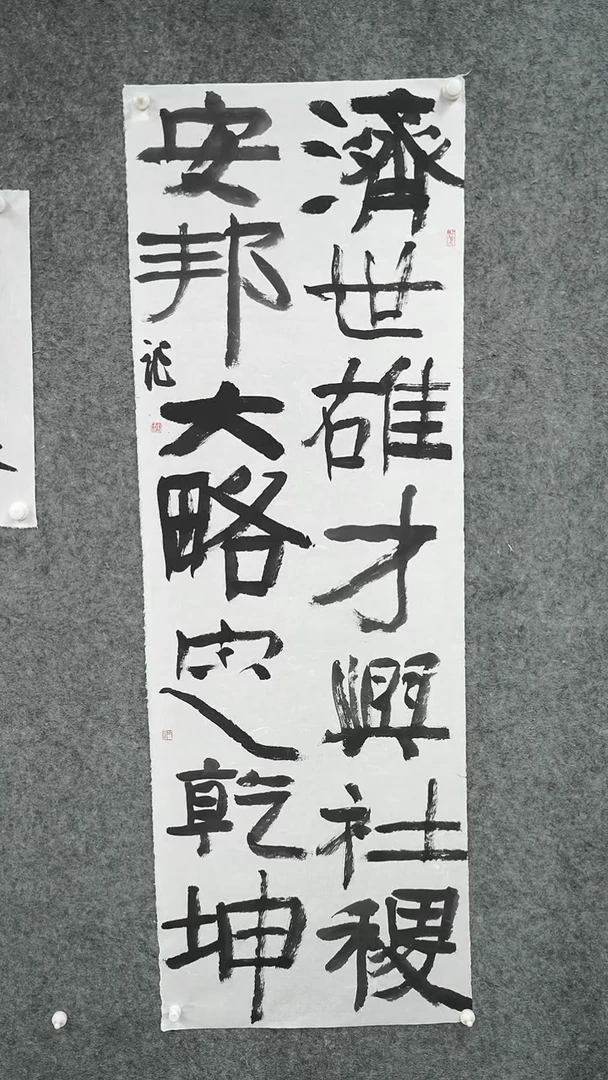 濟世雄才興社稷
安邦大略定乾坤